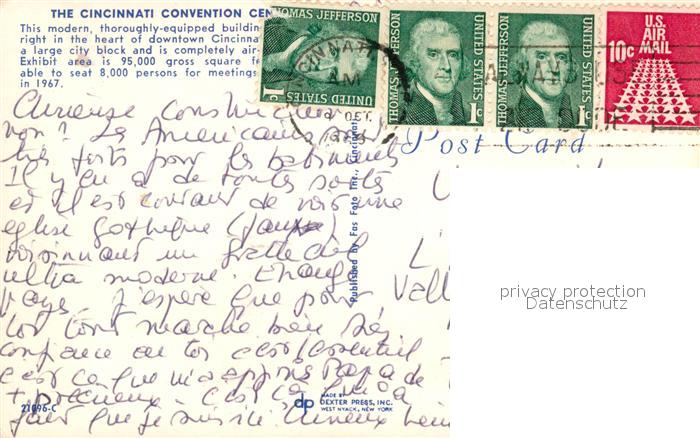 THE CINCINNATI CONVENTION CEN
This modern, thoroughly-equipped buildin
right in the heart of downtown Cincinnat
a large city block and is completely air-
Exhibit area is 95,000 gross square fe
able to seat 8,000 persons for meetings
in 1967.
THOMAS JEFFERSON
1c
UNITED STATES
THOMAS JEFFERSON
1c
UNITED STATES
THOMAS JEFFERSON
1c
UNITED STATES
U.S.
AIR
MAIL
10c
CINNATI
AM
Post Card
Curieuse construction
non? Les Américains sont
très forts pour les bâtiments
Il y en a de toutes sortes
et il est courant de voir une
église gothique (fausse)
voisinant un gratte ciel
ultra moderne. Etrange
pays. J'espère que pour
toi tout marche bien.
confiance en toi c'est l'essentiel
c'est ce que m'a appris Papa de
+ précieux. C'est
que je suis ici
Published by Fas Foto Inc., Cincinnati
21096-C
dp
MADE BY
DEXTER PRESS, INC.
WEST NYACK, NEW YORK
L'
Vall
privacy protection
Datenschutz